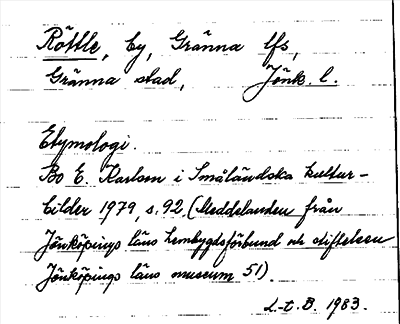 Röttle, by, Gränna lfs,
Gränna stad, Jönk. l.
Etymologi.
Bo E. Karlson i Småländska kultur-
bilder 1979, s. 92 (Meddelanden från
Jönköpings läns hembygdsförbund och stiftelsen
Jönköpings läns museum 51).
L-t. B. 1983.